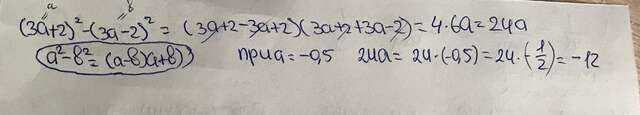 a в
(3a+2)²-(3a-2)² = (3a+2-3a+2)(3a+2+3a-2)=4·6a=24a
a²-в²=(a-в)(a+в) при a=-0,5 24a=24·(-0,5)=24·(-1/2)=-12